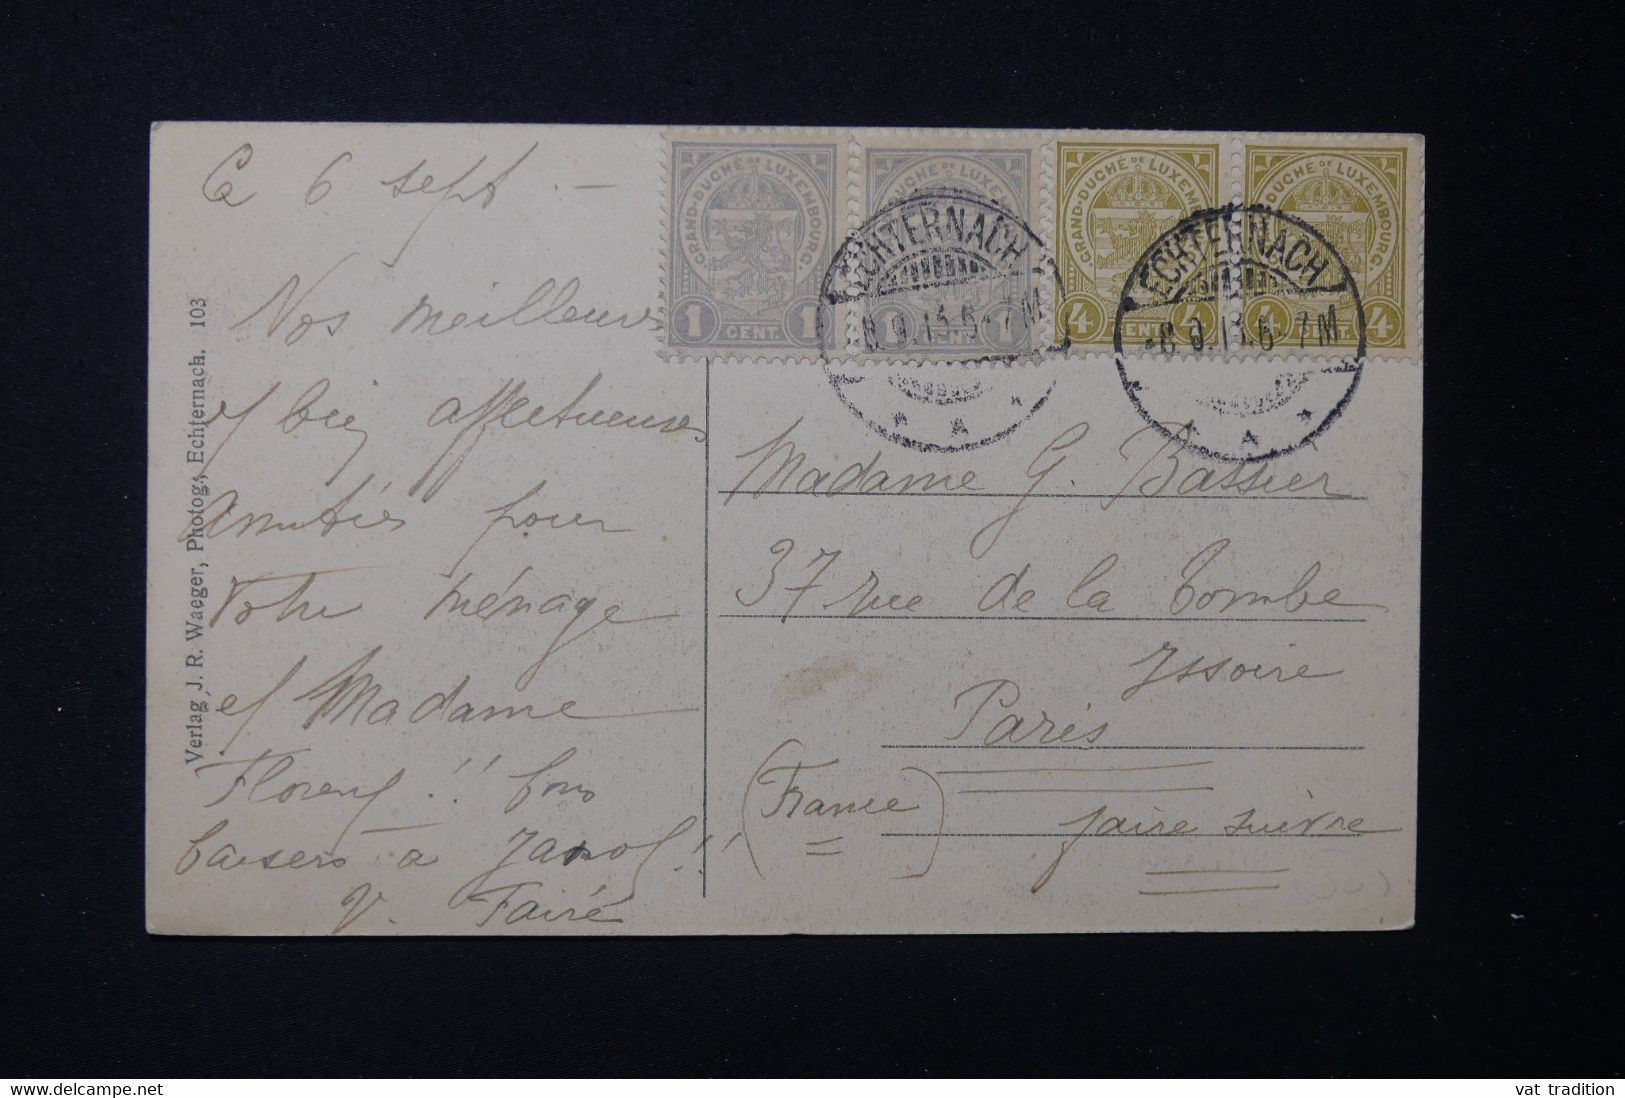 Ce 6 sept. –
Nos meilleures
et bien affectueuses
amitiés pour
votre ménage
et Madame
Florent !! bons
baisers à
V. Fairé
Verlag J. R. Waeger, Photog., Echternach. 103
GRAND-DUCHÉ DE LUXEMBOURG.
1 CENT. 1
GRAND-DUCHÉ DE LUXEMBOURG.
1 CENT. 1
GRAND-DUCHÉ DE LUXEMBOURG.
4 CENT. 4
GRAND-DUCHÉ DE LUXEMBOURG.
4 CENT. 4
ECHTERNACH
8.9.13.6-7M
ECHTERNACH
-8.9.13.6-7M
Madame G. Bassier
37 rue de la Tombe
Issoire
Paris
(France)
faire suivre
vat tradition